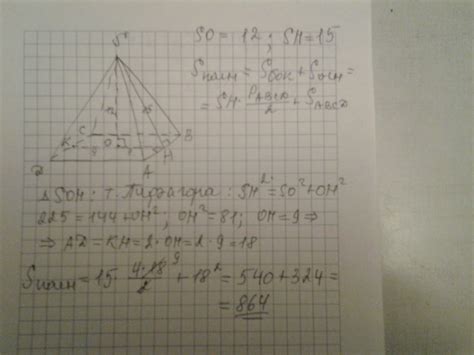 SO = 12 ; SH = 15
Sполн = Sбок + Sосн =
= SH · P_ABCD / 2 + S_ABCD
S
12 15
K C O B
9 H
D A
△SOH: т. Пифагора: SH² = SO² + OH²
225 = 144 + OH²; OH² = 81; OH = 9 ⇒
⇒ AD = KH = 2·OH = 2·9 = 18
Sполн = 15 · 4·18 / 2 9 + 18² = 540 + 324 =
= 864